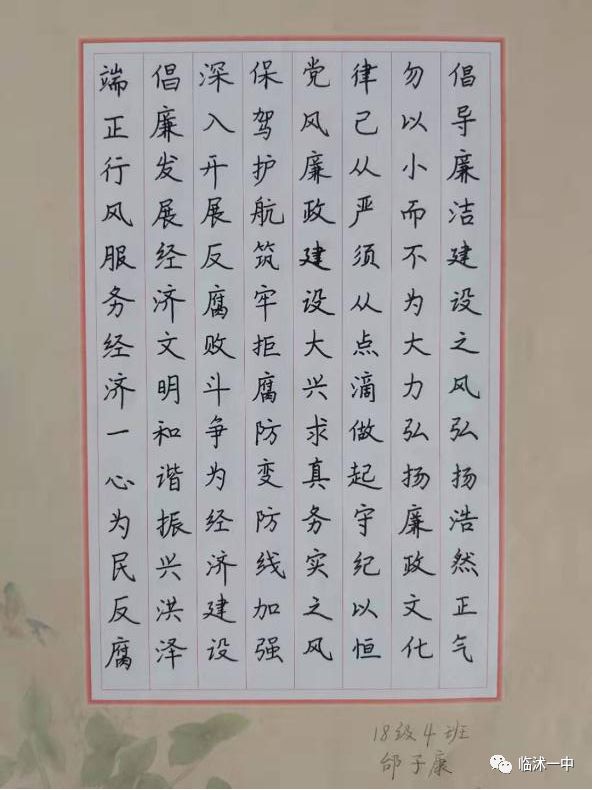 倡导廉洁建设之风弘扬浩然正气
勿以小而不为大力弘扬廉政文化
律己从严须从点滴做起守纪以恒
党风廉政建设大兴求真务实之风
保驾护航筑牢拒腐防变防线加强
深入开展反腐败斗争为经济建设
倡廉发展经济文明和谐振兴洪泽
端正行风服务经济一心为民反腐
18级4班
子康
临沭一中